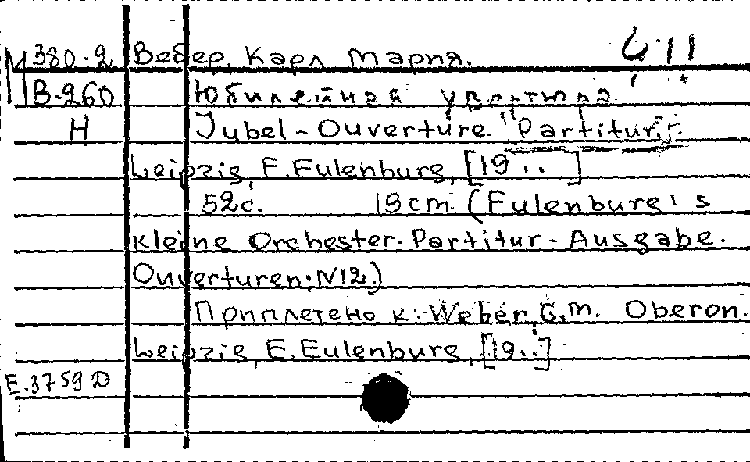 М380-2 Вебер, Карл Мария. 411
В-260 Юбилейная увертюра
Н Jubel-Ouverture. Partitur.
Leipzig, E.Eulenburg, [19..]
52с. 19cm. (Eulenburg's
kleine Orchester-Partitur-Ausgabe.
Ouverturen: N12.)
Приплетено к: Weber, C.m. Oberon.
Leipzig, E.Eulenburg, [19..]
E.3759D